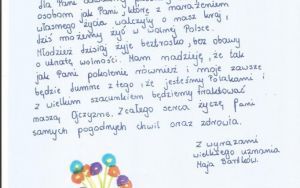 dla Pani
osobom jak Pani, które z narażeniem
własnego życia walczyły o nasz kraj,
dziś możemy żyć w wolnej Polsce.
Młodzież dzisiaj żyje beztrosko, bez obawy
o utratę wolności. Mam nadzieję, że tak
jak Pani pokolenie również i moje zawsze
będzie dumne z tego, że jesteśmy Polakami i
z wielkim szacunkiem będziemy traktować
naszą Ojczyznę. Z całego serca życzę Pani
samych pogodnych chwil oraz zdrowia.
Z wyrazami
wielkiego uznania
Maja